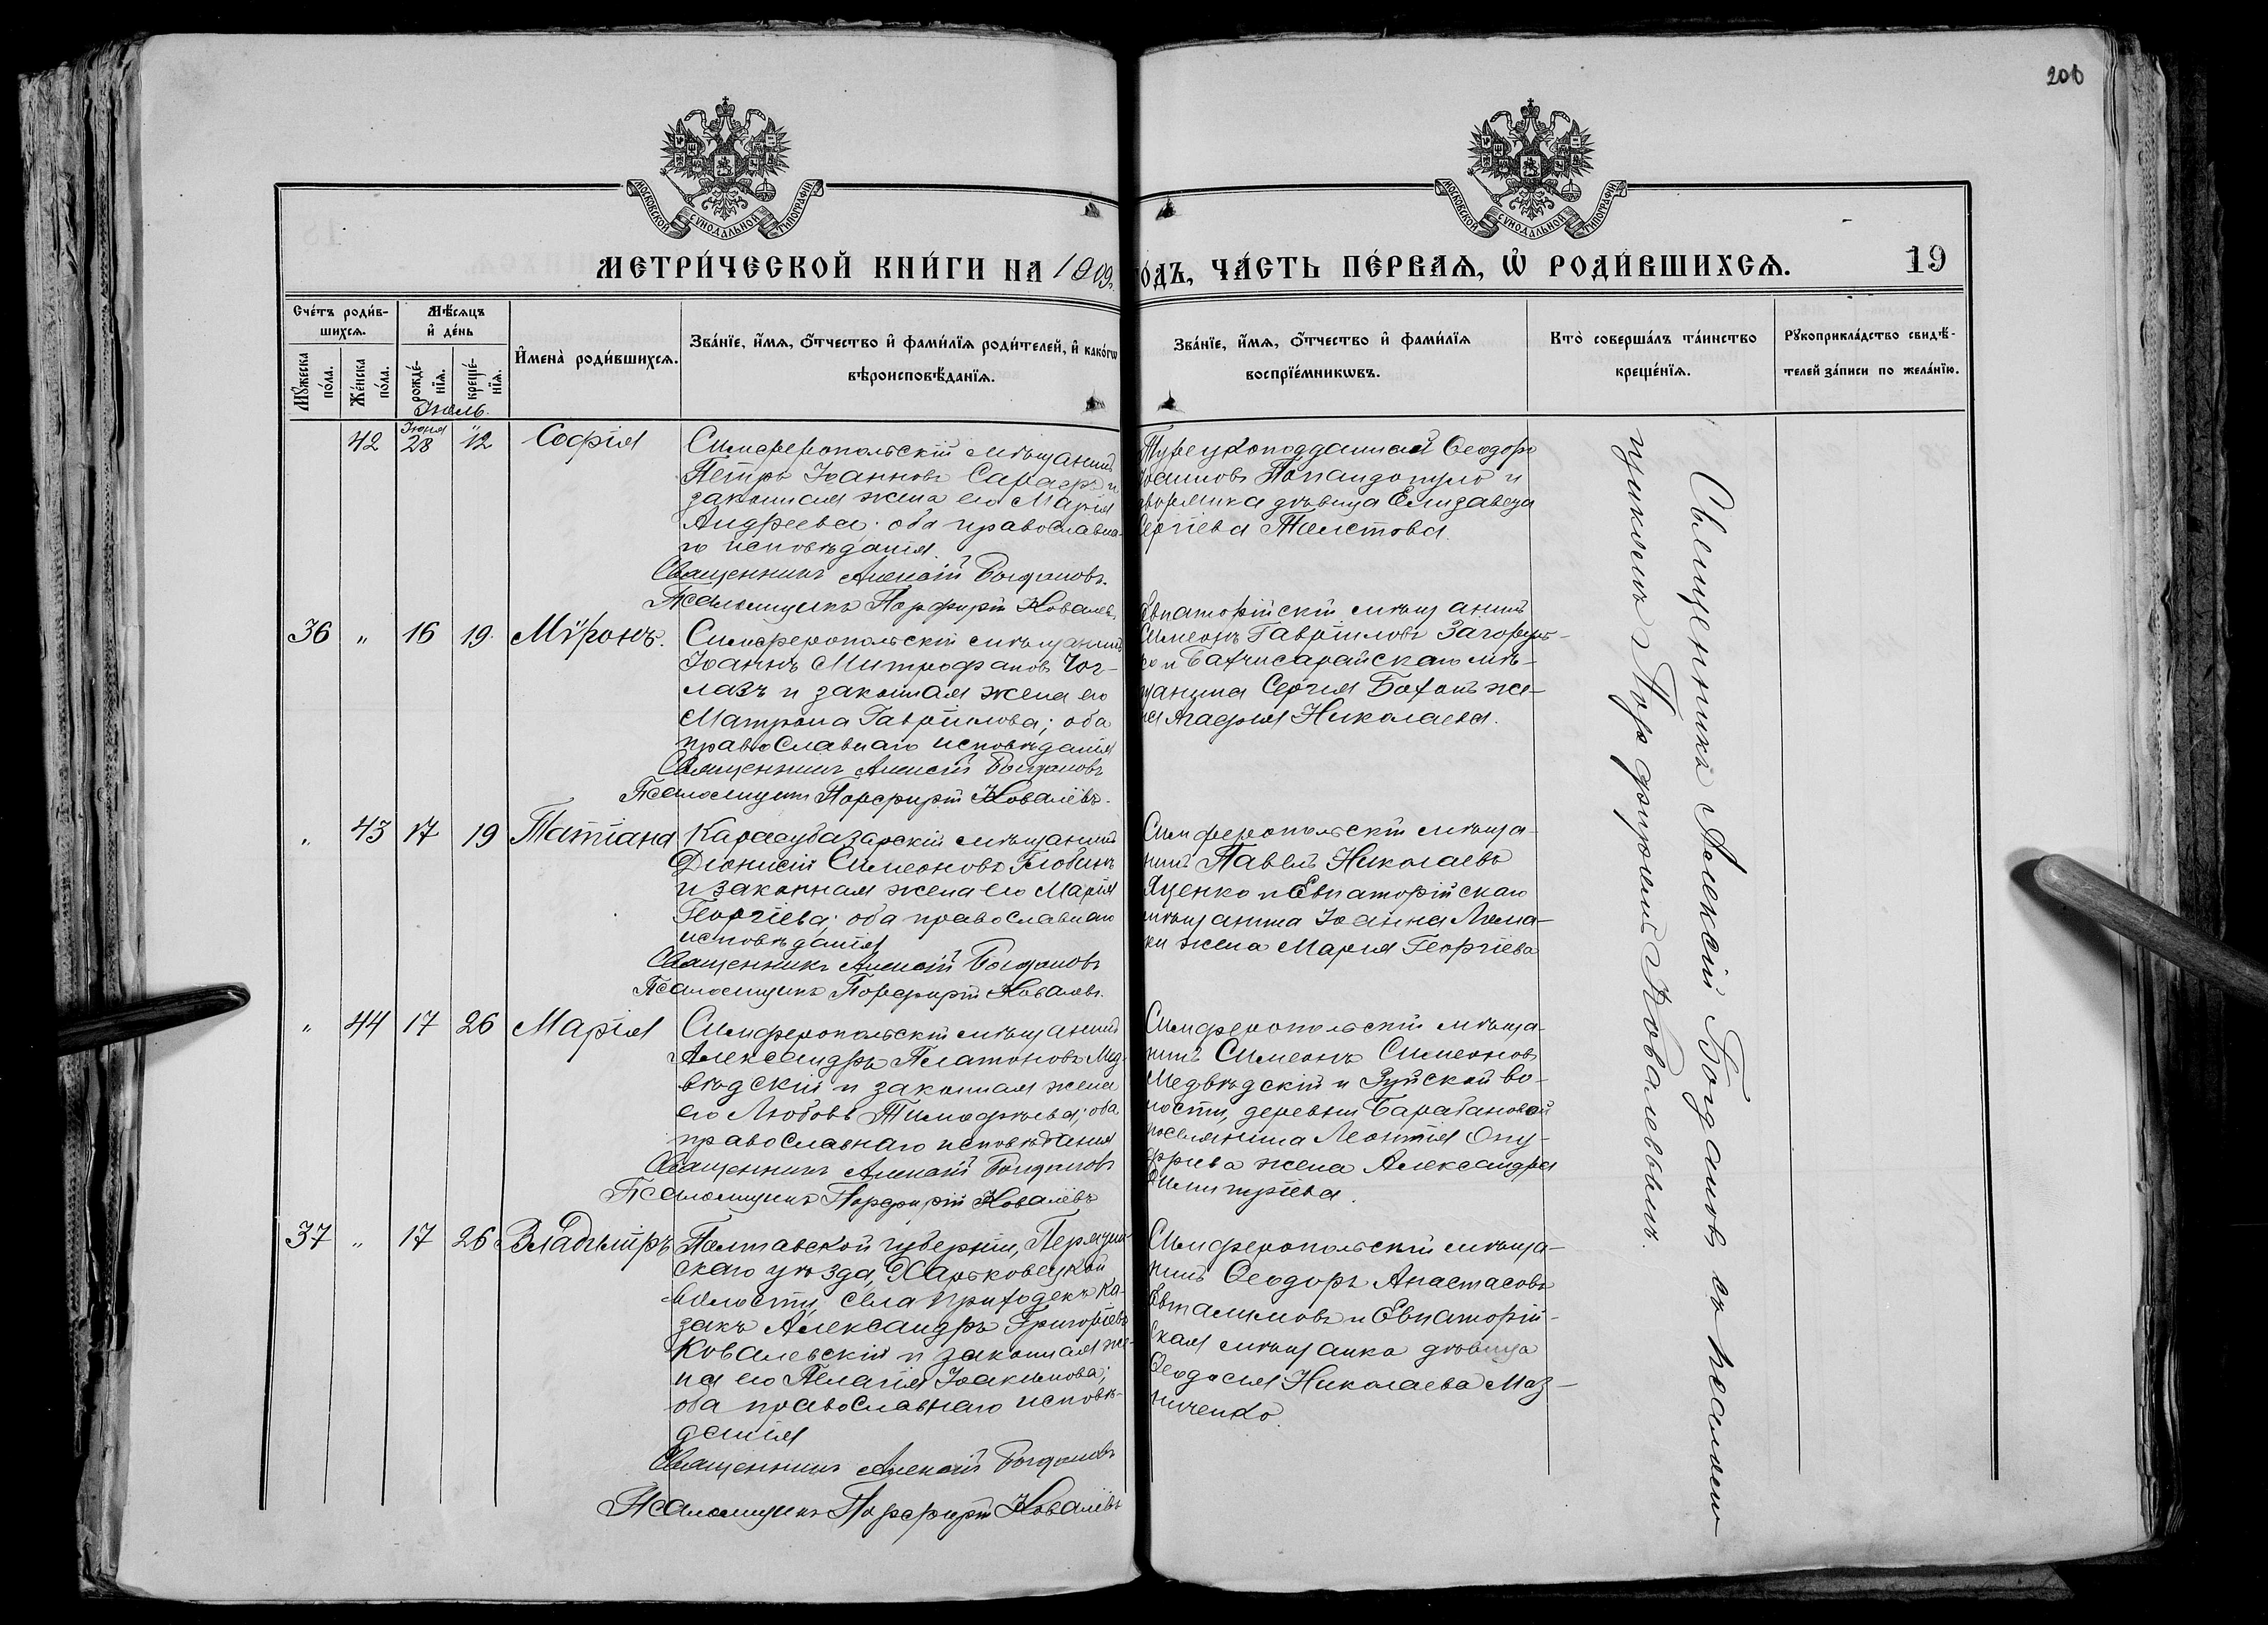 206
МОСКОВСКОЙ СУНОДАЛЬНОЙ ТИПОГРАФІИ
МОСКОВСКОЙ СУНОДАЛЬНОЙ ТИПОГРАФІИ
МЕТРИ́ЧЕСКОЙ КНИ́ГИ НА 1909 г.
ГО́ДЪ, ЧА́СТЬ ПЕ́РВАѦ, Ѡ҆ РОДИ́ВШИХСѦ.
19
Сче́тъ роди́в-
шихсѧ.
Мꙋ́жеска по́ла.
Же́нска по́ла.
Мѣ́сѧцъ
и҆ де́нь
рожде́-
нїѧ.
креще́-
нїѧ.
И҆мена̀ роди́вшихсѧ.
Зва́нїе, и҆́мѧ, ѻ҆́тчество и҆ фами́лїѧ роди́телей, и҆ како́гѡ
вѣроисповѣ́данїѧ.
Зва́нїе, и҆́мѧ, ѻ҆́тчество и҆ фами́лїѧ
воспрїе́мникѡвъ.
Кто̀ соверша́лъ та́инство
креще́нїѧ.
Рꙋкоприкла́дство свидѣ́-
телей за́писи по жела́нїю.
Іюль.
42 Іюня 28 12 Софія
Симферопольскій мѣщанинъ
Петръ Іоанновъ и
законная жена его Марія
Андреева; оба православна-
го исповѣданія.
Священникъ Алексій Богдановъ.
Псаломщикъ Порфирій Ковалевъ
Турецкоподданный Ѳеодоръ
Іоанновъ Попандопуло и
дворянка дѣвица Елизавета
Сергіева Толстова.
36 " 16 19. Мѵронъ.
Симферопольскій мѣщанинъ
Іоаннъ Митрофановъ Чог-
лазъ и законная жена его
Матрона Гавріилова; оба
православнаго исповѣданія
Священникъ Алексій Богдановъ
Псаломщикъ Порфирій Ковалёвъ.
Евпаторійскій мѣщанинъ
Симеонъ Гавріиловъ Загоруй-
ко и Бахчисарайскаго мѣ-
щанина Сергія Бохонъ же-
на Агафія Николаева.
" 43 17 19 Татіана
Карасубазарскій мѣщанинъ
Діонисій Симеоновъ Глобинъ
и законная жена его Марія
Георгіева; оба православнаго
исповѣданія
Священникъ Алексій Богдановъ
Псаломщикъ Порфирій Ковалевъ.
Симферопольскій мѣща-
нинъ Павелъ Николаевъ
Яценко и Евпаторійскаго
мѣщанина Іоанна Лома-
ки жена Марія Георгіева
" 44 17 26 Марія
Симферопольскій мѣщанинъ
Александръ Платоновъ Мед-
вѣдскій и законная жена
его Любовь Тимофѣева; оба
православнаго исповѣданія
Священникъ Алексій Богдановъ
Псаломщикъ Порфирій Ковалёвъ
Симферопольскій мѣща-
нинъ Симеонъ Симеоновъ
Медвѣдскій и Зуйской во-
лости, деревни Барабановой
поселянина Леонтія Ону-
фріева жена Александра
Димитріева.
37 " 17 26 Владиміръ
Полтавской губерніи, Пирятин-
скаго уѣзда, Харьковецкой
волости, села Приходекъ ка-
закъ Александръ Григоріевъ
Ковалевскій и законная же-
на его Пелагія Іоакимова;
оба православнаго исповѣ-
данія
Священникъ Алексій Богдановъ
Псаломщикъ Порфирій Ковалёвъ
Симферопольскій мѣща-
нинъ Ѳеодоръ Анастасовъ
Евталимовъ и Евпаторій-
ская мѣщанка дѣвица
Ѳеодосія Николаева Маз-
ниченко.
Священникъ Алексій Богдановъ съ псаломщ-
щикомъ Порфиріемъ Ковалевымъ.